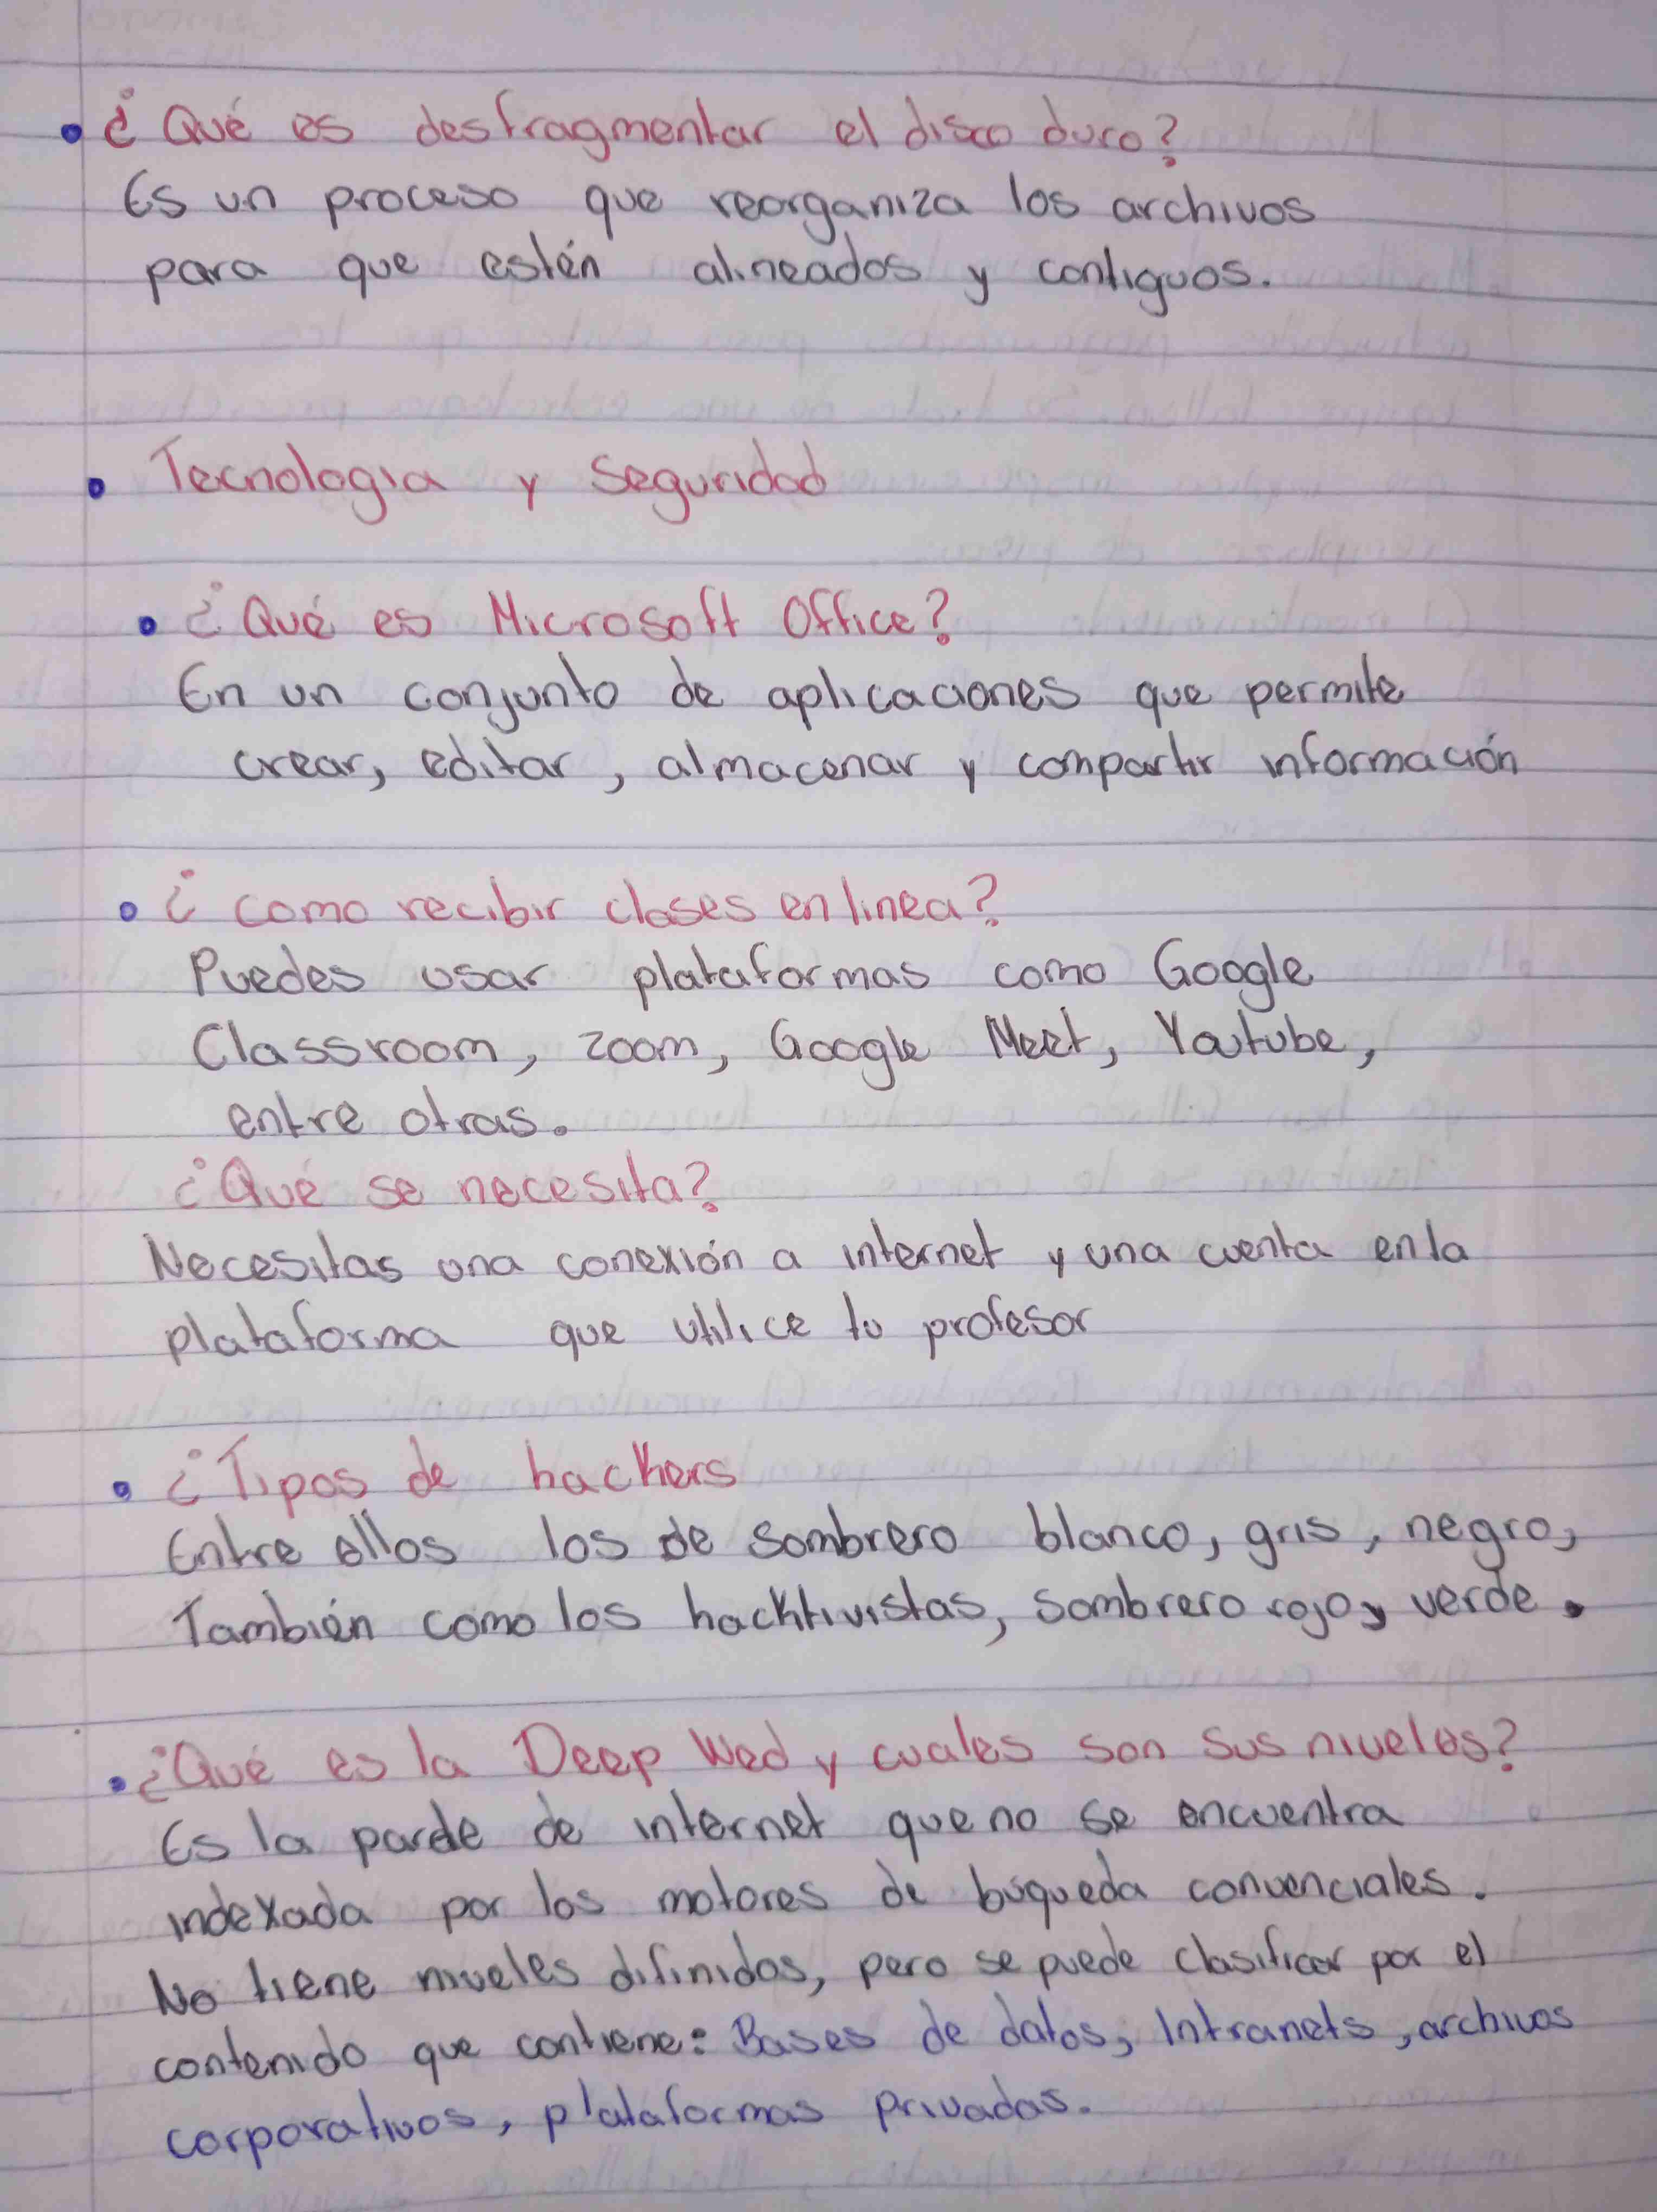 • ¿Qué es desfragmentar el disco duro?
Es un proceso que reorganiza los archivos
para que estén alineados y contiguos.
• Tecnologia y Seguridad
• ¿Qué es Microsoft Office?
En un conjunto de aplicaciones que permite
crear, editar, almacenar y compartir información
• ¿como recibir clases en linea?
Puedes usar plataformas como Google
Classroom, zoom, Google Meet, Youtube,
entre otras.
¿Qué se necesita?
Necesitas una conexión a internet y una cuenta en la
plataforma que utilice tu profesor
• ¿Tipos de hackers
Entre ellos los de sombrero blanco, gris, negro,
También como los hacktivistas, sombrero rojo y verde.
• ¿Qué es la Deep Wed y cuales son sus niveles?
Es la parde de internet que no se encuentra
indexada por los motores de búqueda convenciales.
No tiene niveles difinidos, pero se puede clasificar por el
contenido que contiene: Bases de datos, Intranets, archivos
corporativos, plataformas privadas.